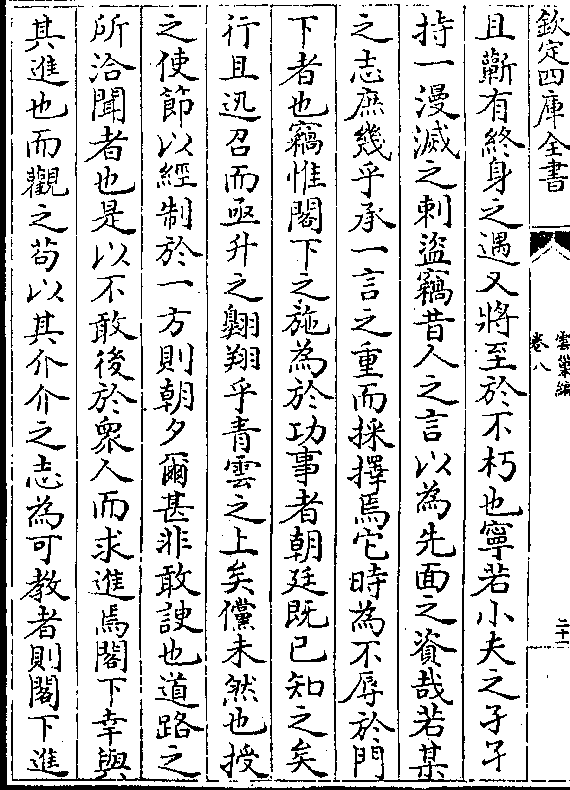 欽定四庫全書
雲巢編
卷八
二十一
且蘄有終身之遇又將至於不朽也寧若小夫之孑孑
持一漫滅之刺盜竊昔人之言以為先面之資哉若某
之志庶幾乎承一言之重而採擇焉它時為不辱於門
下者也竊惟閣下之施為於功事者朝廷既已知之矣
行且迅召而亟升之翺翔乎青雲之上矣儻未然也授
之使節以經制於一方則朝夕爾甚非敢諛也道路之
所洽聞者也是以不敢後於衆人而求進焉閣下幸與
其進也而觀之苟以其介介之志為可教者則閣下進